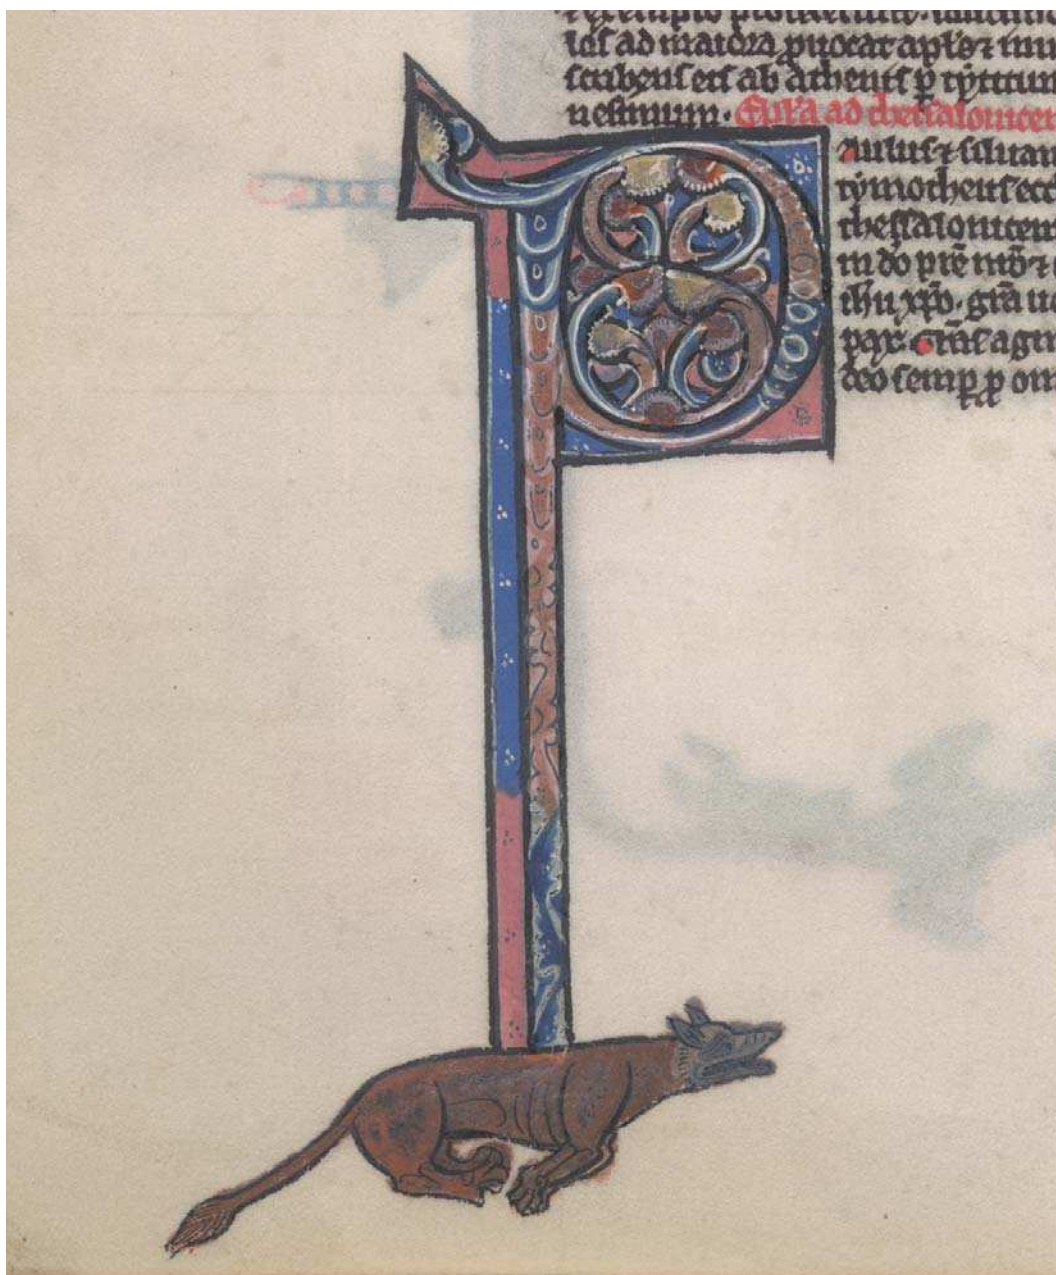 ios ad maiora ꝓuocat apl's ⁊ mu
scribens eis ab athenis ꝑ tytitum
nesimum. Ep̃la ad thessalonicen
P aulus ⁊ siluan
tymotheus ecc
thessalonicen
in do pr̃e nr̃o ⁊
ihu xp̃o. gr̃a u
pax. Gr̃as agi
deo semꝑ ꝓ om